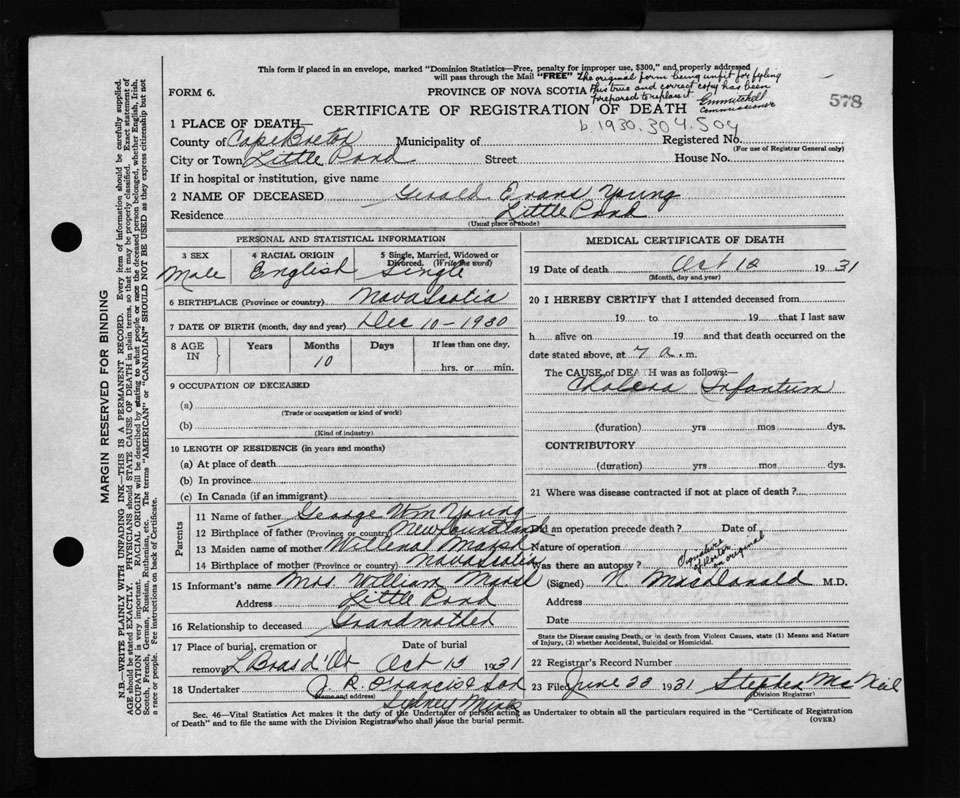 This form if placed in an envelope, marked "Dominion Statistics—Free, penalty for improper use, $300," and properly addressed
will pass through the Mail "FREE" The original form being unfit for filing
FORM 6. PROVINCE OF NOVA SCOTIA this true and correct copy has been
prepared to replace it.
Commissioner
CERTIFICATE OF REGISTRATION OF DEATH 578
b. 1930.304.504
1 PLACE OF DEATH—
County of Cape Breton Municipality of Registered No.
(For use of Registrar General only)
City or Town Little Pond Street House No.
If in hospital or institution, give name
2 NAME OF DECEASED Gerald Evans Young
Residence Little Pond
(Usual place of abode)
PERSONAL AND STATISTICAL INFORMATION
3 SEX 4 RACIAL ORIGIN 5 Single, Married, Widowed or
Divorced. (Write the word)
Male English Single
6 BIRTHPLACE (Province or country) Nova Scotia
7 DATE OF BIRTH (month, day and year) Dec 10-1930
8 AGE IN Years Months Days If less than one day,
10 hrs. or min.
9 OCCUPATION OF DECEASED
(a)
(Trade or occupation or kind of work)
(b)
(Kind of industry)
10 LENGTH OF RESIDENCE (in years and months)
(a) At place of death
(b) In province
(c) In Canada (if an immigrant)
Parents
11 Name of father George Wm Young
12 Birthplace of father (Province or country) Newfoundland
13 Maiden name of mother Willena Marsh
14 Birthplace of mother (Province or country) Nova Scotia
15 Informant's name Mrs William Marsh
Address Little Pond
16 Relationship to deceased Grandmother
17 Place of burial, cremation or Date of burial
removal L Bras d'Or Oct 13 1931
18 Undertaker J. R. Francis & Son
(Name and address)
Sydney Mines
MEDICAL CERTIFICATE OF DEATH
19 Date of death Oct 12 1931
(Month, day and year)
20 I HEREBY CERTIFY that I attended deceased from
19 to 19 that I last saw
h alive on 19 and that death occurred on the
date stated above, at 7 a.m.
The CAUSE of DEATH was as follows:—
Cholera Infantum
(duration) yrs mos dys.
CONTRIBUTORY
(duration) yrs mos dys.
21 Where was disease contracted if not at place of death?
Did an operation precede death? Date of
Nature of operation
Was there an autopsy? Signature of doctor on original
(Signed) N. MacDonald M.D.
Address
Date
State the Disease causing Death, or in death from Violent Causes, state (1) Means and Nature
of Injury, (2) whether Accidental, Suicidal or Homicidal.
22 Registrar's Record Number
23 Filed June 23 1931 Stephen McNeil
(Division Registrar)
Sec. 46—Vital Statistics Act makes it the duty of the Undertaker or person acting as Undertaker to obtain all the particulars required in the "Certificate of Registration
of Death" and to file the same with the Division Registrar who shall issue the burial permit. (OVER)
MARGIN RESERVED FOR BINDING
N.B.—WRITE PLAINLY WITH UNFADING INK—THIS IS A PERMANENT RECORD. Every item of information should be carefully supplied.
AGE should be stated EXACTLY. PHYSICIANS should STATE CAUSE OF DEATH in plain terms, so that it may be properly classified. Exact statement of
OCCUPATION is very important. RACIAL ORIGIN will be described by stating to what people or race the deceased person belonged, whether English, Irish,
Scotch, French, German, Russian, Ruthenian, etc. The terms "AMERICAN" or "CANADIAN" SHOULD NOT BE USED as they express citizenship but not
a race or people. Fee instructions on back of Certificate.